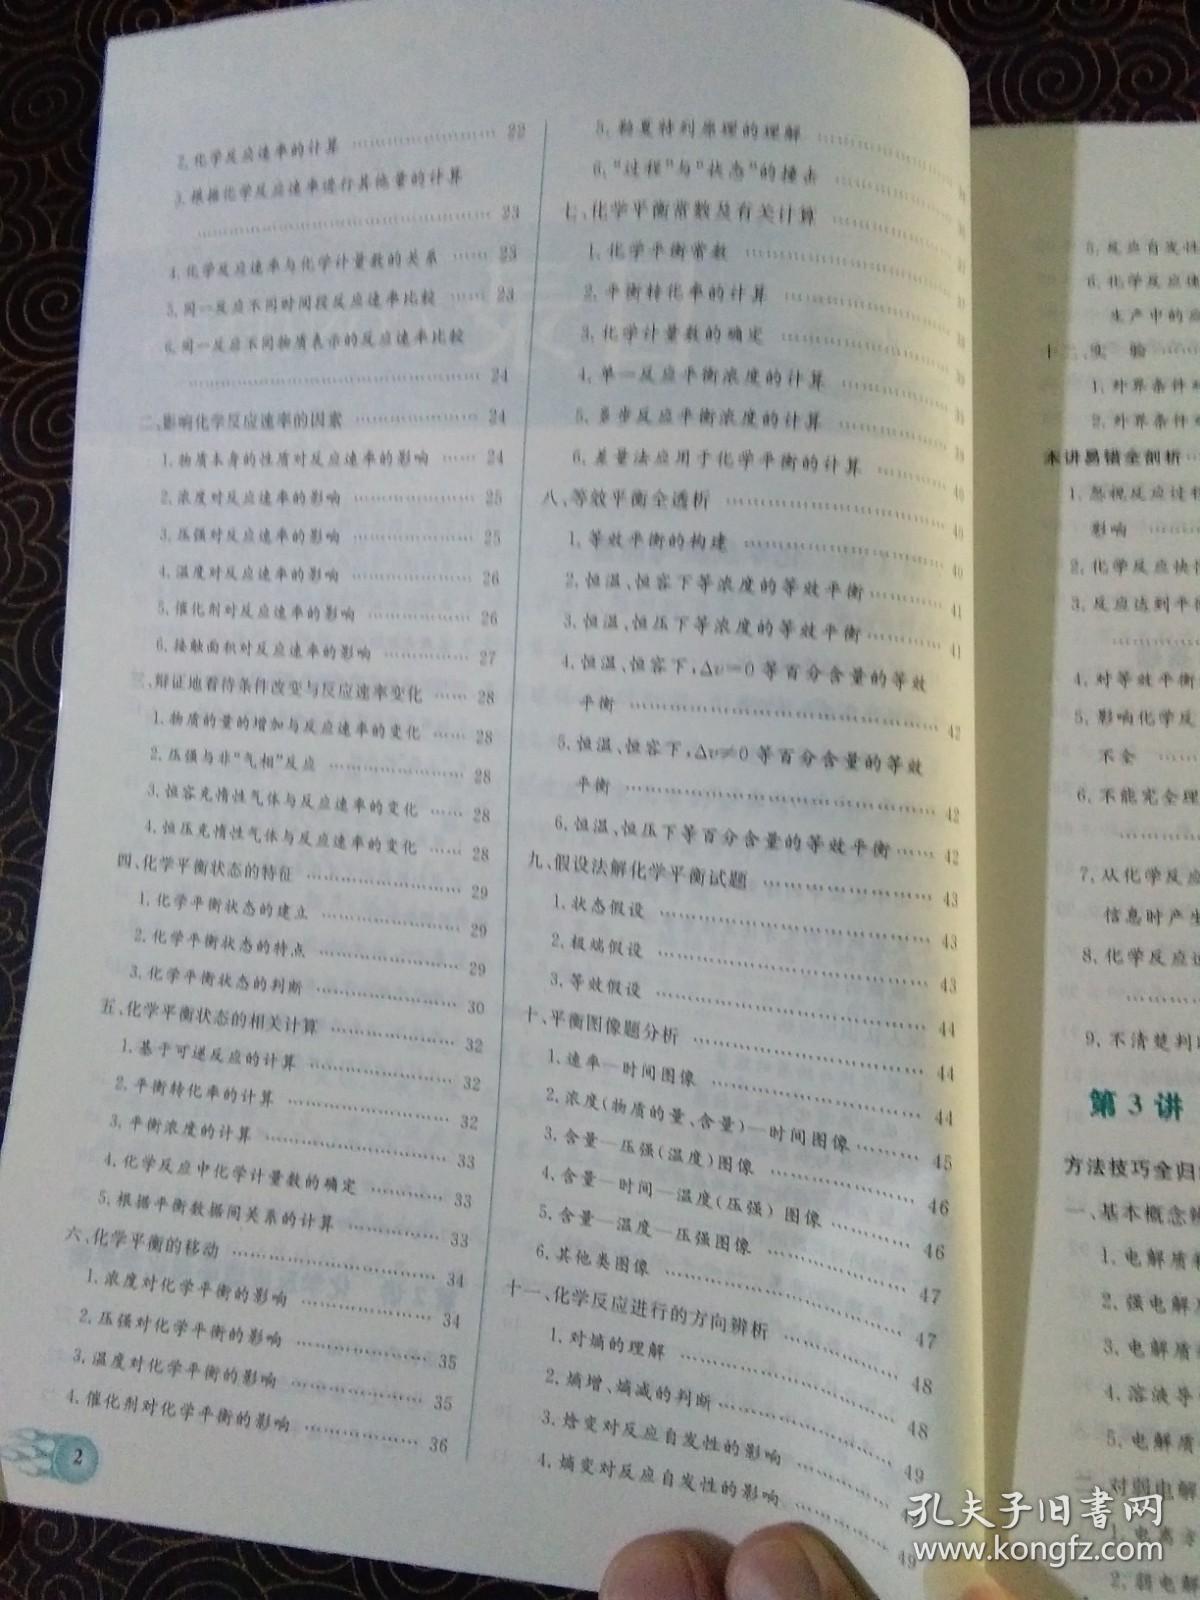 2.化学反应速率的计算 …… 22
3.根据化学反应速率进行其他量的计算
…… 23
4.化学反应速率与化学计量数的关系 …… 23
5.同一反应不同时间段反应速率比较 …… 23
6.同一反应不同物质表示的反应速率比较
…… 24
二、影响化学反应速率的因素 …… 24
1.物质本身的性质对反应速率的影响 …… 24
2.浓度对反应速率的影响 …… 25
3.压强对反应速率的影响 …… 25
4.温度对反应速率的影响 …… 26
5.催化剂对反应速率的影响 …… 26
6.接触面积对反应速率的影响 …… 27
三、辩证地看待条件改变与反应速率变化 …… 28
1.物质的量的增加与反应速率的变化 …… 28
2.压强与非“气相”反应 …… 28
3.恒容充惰性气体与反应速率的变化 …… 28
4.恒压充惰性气体与反应速率的变化 …… 28
四、化学平衡状态的特征 …… 29
1.化学平衡状态的建立 …… 29
2.化学平衡状态的特点 …… 29
3.化学平衡状态的判断 …… 30
五、化学平衡状态的相关计算 …… 32
1.基于可逆反应的计算 …… 32
2.平衡转化率的计算 …… 32
3.平衡浓度的计算 …… 33
4.化学反应中化学计量数的确定 …… 33
5.根据平衡数据间关系的计算 …… 33
六、化学平衡的移动 …… 34
1.浓度对化学平衡的影响 …… 34
2.压强对化学平衡的影响 …… 35
3.温度对化学平衡的影响 …… 35
4.催化剂对化学平衡的影响 …… 36
2
5.勒夏特列原理的理解 ……
6.“过程”与“状态”的撞击 ……
七、化学平衡常数及有关计算 ……
1.化学平衡常数 ……
2.平衡转化率的计算 ……
3.化学计量数的确定 ……
4.单一反应平衡浓度的计算 ……
5.多步反应平衡浓度的计算 ……
6.差量法应用于化学平衡的计算 …… 40
八、等效平衡全透析 …… 40
1.等效平衡的构建 …… 40
2.恒温、恒容下等浓度的等效平衡 …… 41
3.恒温、恒压下等浓度的等效平衡 …… 41
4.恒温、恒容下,Δν=0等百分含量的等效
平衡 …… 42
5.恒温、恒容下,Δν≠0等百分含量的等效
平衡 …… 42
6.恒温、恒压下等百分含量的等效平衡 …… 42
九、假设法解化学平衡试题 …… 43
1.状态假设 …… 43
2.极端假设 …… 43
3.等效假设 …… 44
十、平衡图像题分析 …… 44
1.速率—时间图像 …… 44
2.浓度(物质的量、含量)—时间图像 …… 45
3.含量—压强(温度)图像 …… 46
4.含量—时间—温度(压强)图像 …… 46
5.含量—温度—压强图像 …… 47
6.其他类图像 …… 47
十一、化学反应进行的方向辨析 …… 48
1.对熵的理解 …… 48
2.熵增、熵减的判断 …… 49
3.焓变对反应自发性的影响 …… 49
4.熵变对反应自发性的影响 …… 49
5.反应自发性
6.化学反应速
生产中的应
十二、实 验 ……
1.外界条件对
2.外界条件对
本讲易错全剖析 ……
1.忽视反应过程
影响 ……
2.化学反应快慢
3.反应达到平衡
……
4.对等效平衡
5.影响化学反
不全 ……
6.不能完全理
……
7.从化学反应
信息时产生
8.化学反应速
……
9.不清楚判断
第3讲
方法技巧全归
一、基本概念辨
1.电解质和
2.强电解质
3.电解质
4.溶液导
5.电解质
二、对弱电解
1.电离方
2.弱电解
孔夫子旧书网
www.kongfz.com